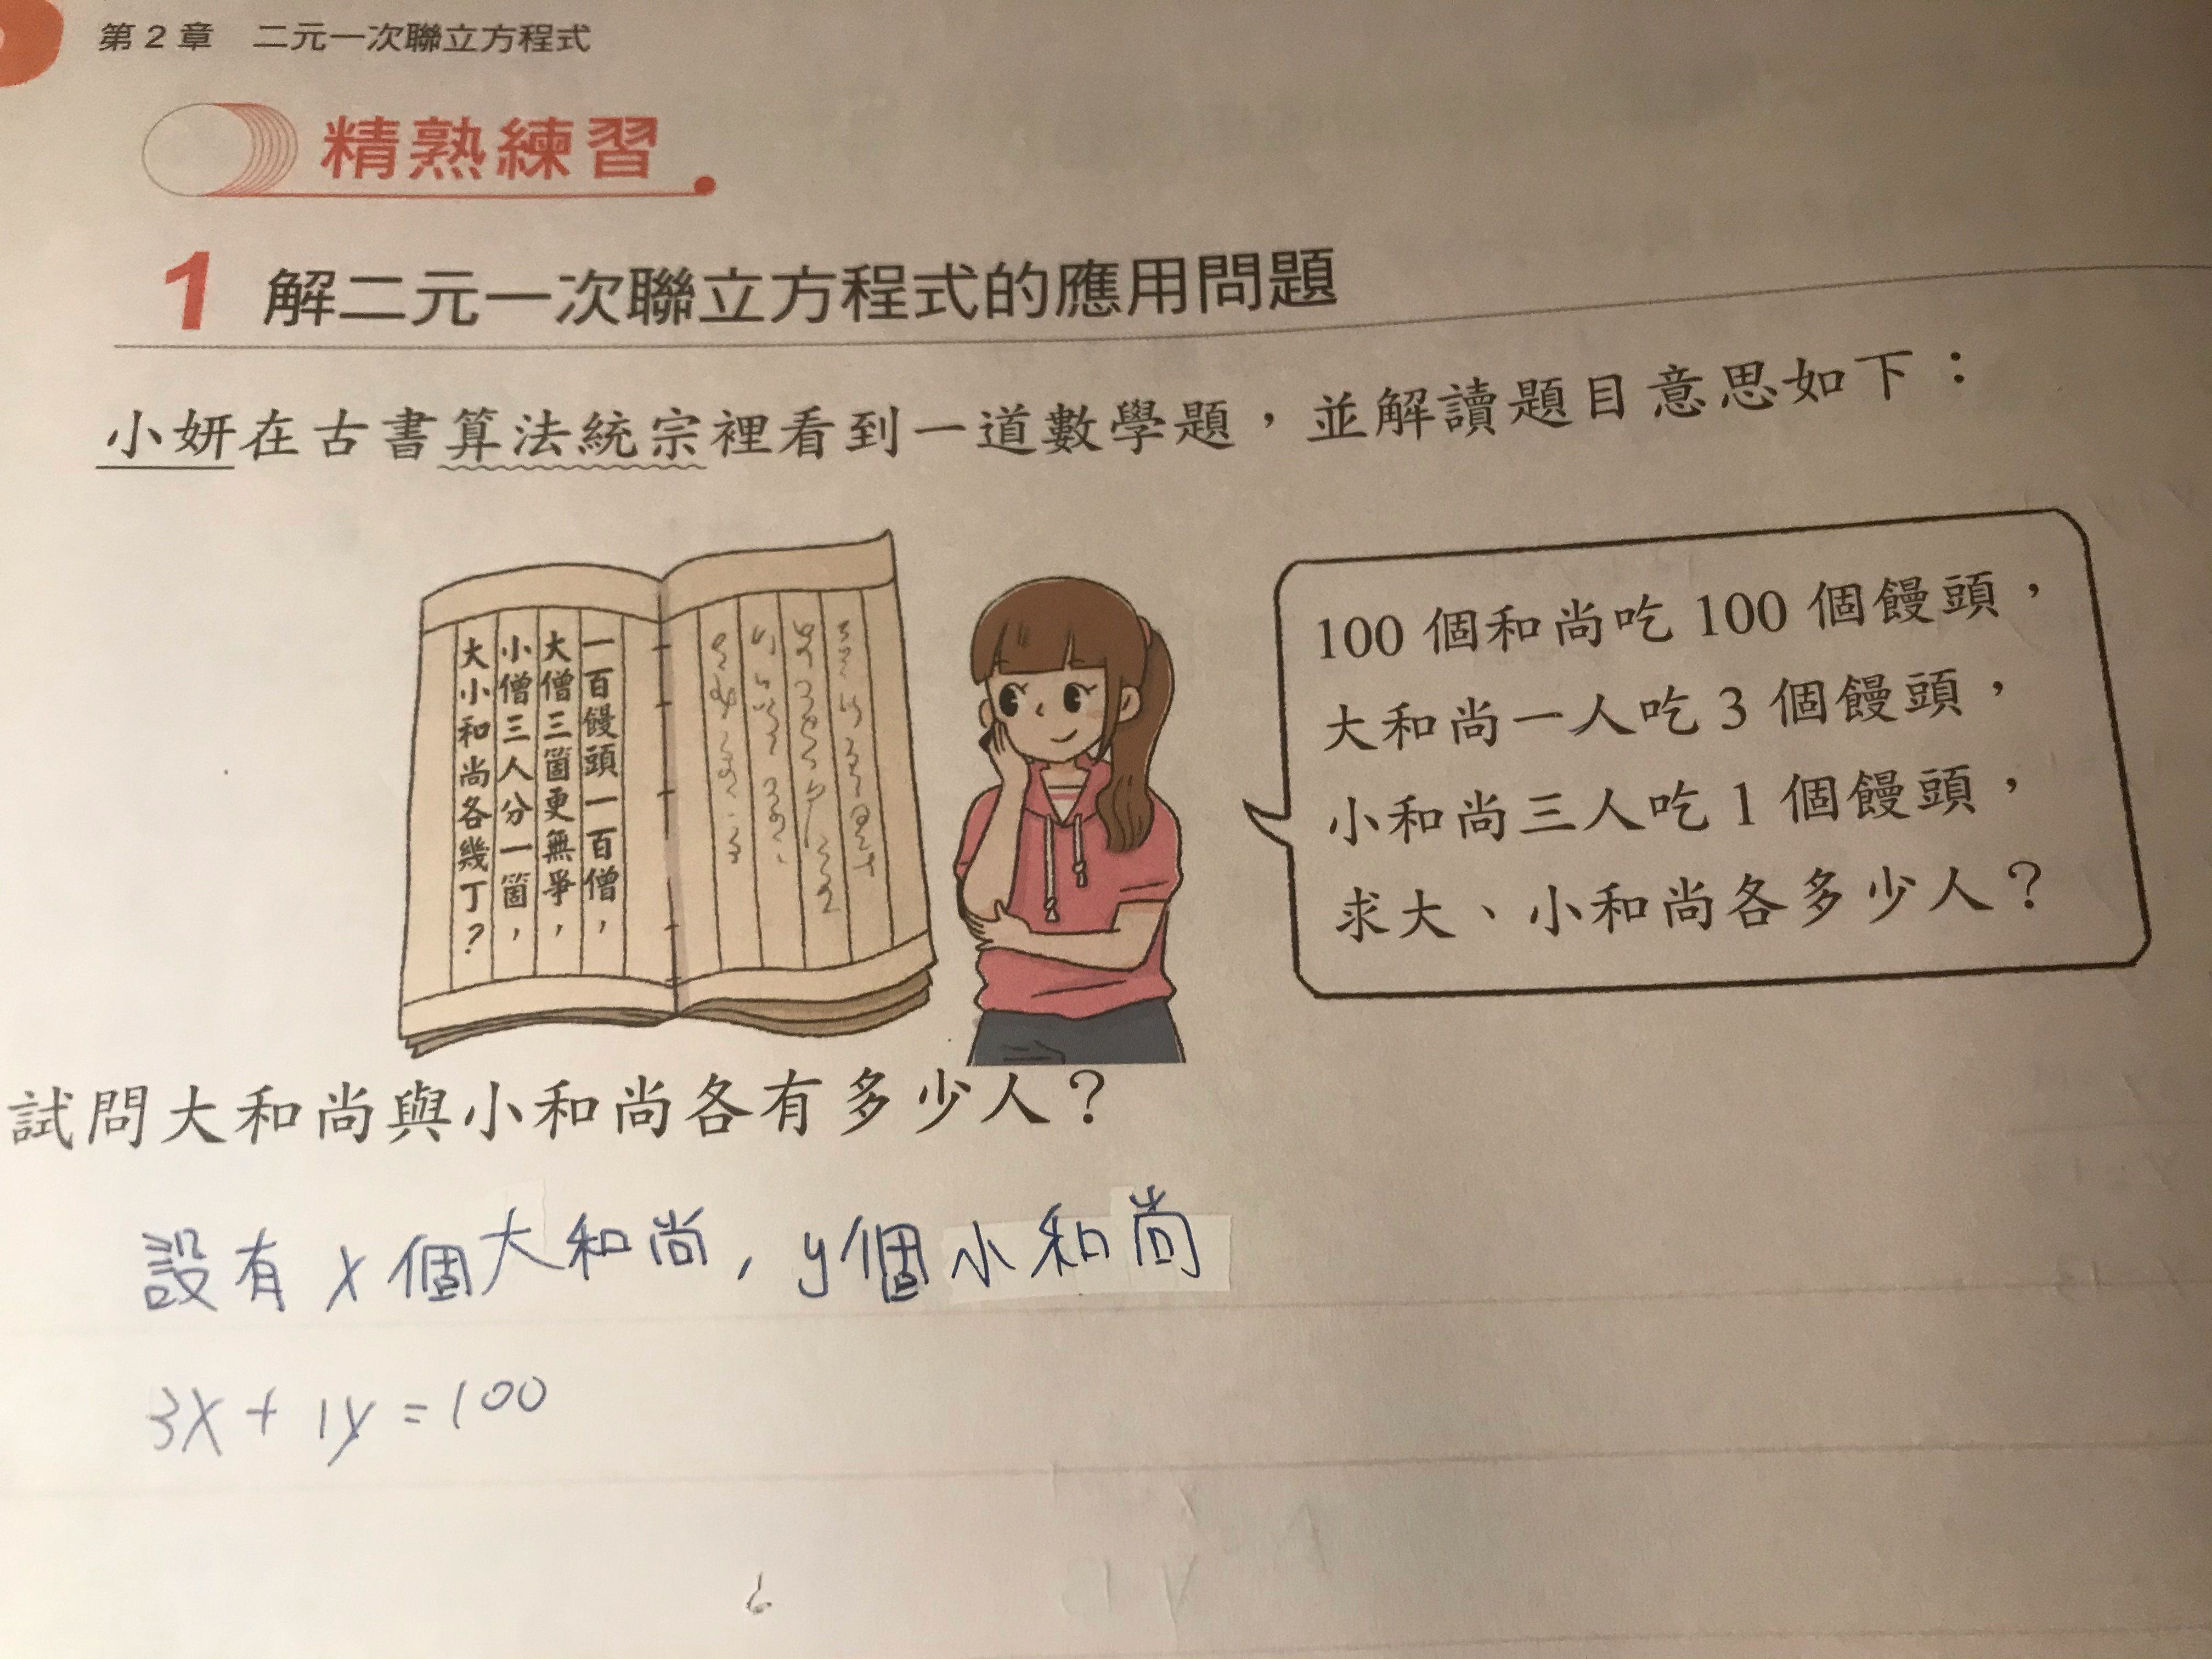 第2章 二元一次聯立方程式
精熟練習
1 解二元一次聯立方程式的應用問題
小妍在古書算法統宗裡看到一道數學題，並解讀題目意思如下：
一百饅頭一百僧，
大僧三箇更無爭，
小僧三人分一箇，
大小和尚各幾丁？
100個和尚吃100個饅頭，
大和尚一人吃3個饅頭，
小和尚三人吃1個饅頭，
求大、小和尚各多少人？
試問大和尚與小和尚各有多少人？
設有x個大和尚，y個小和尚
3x+1y=100